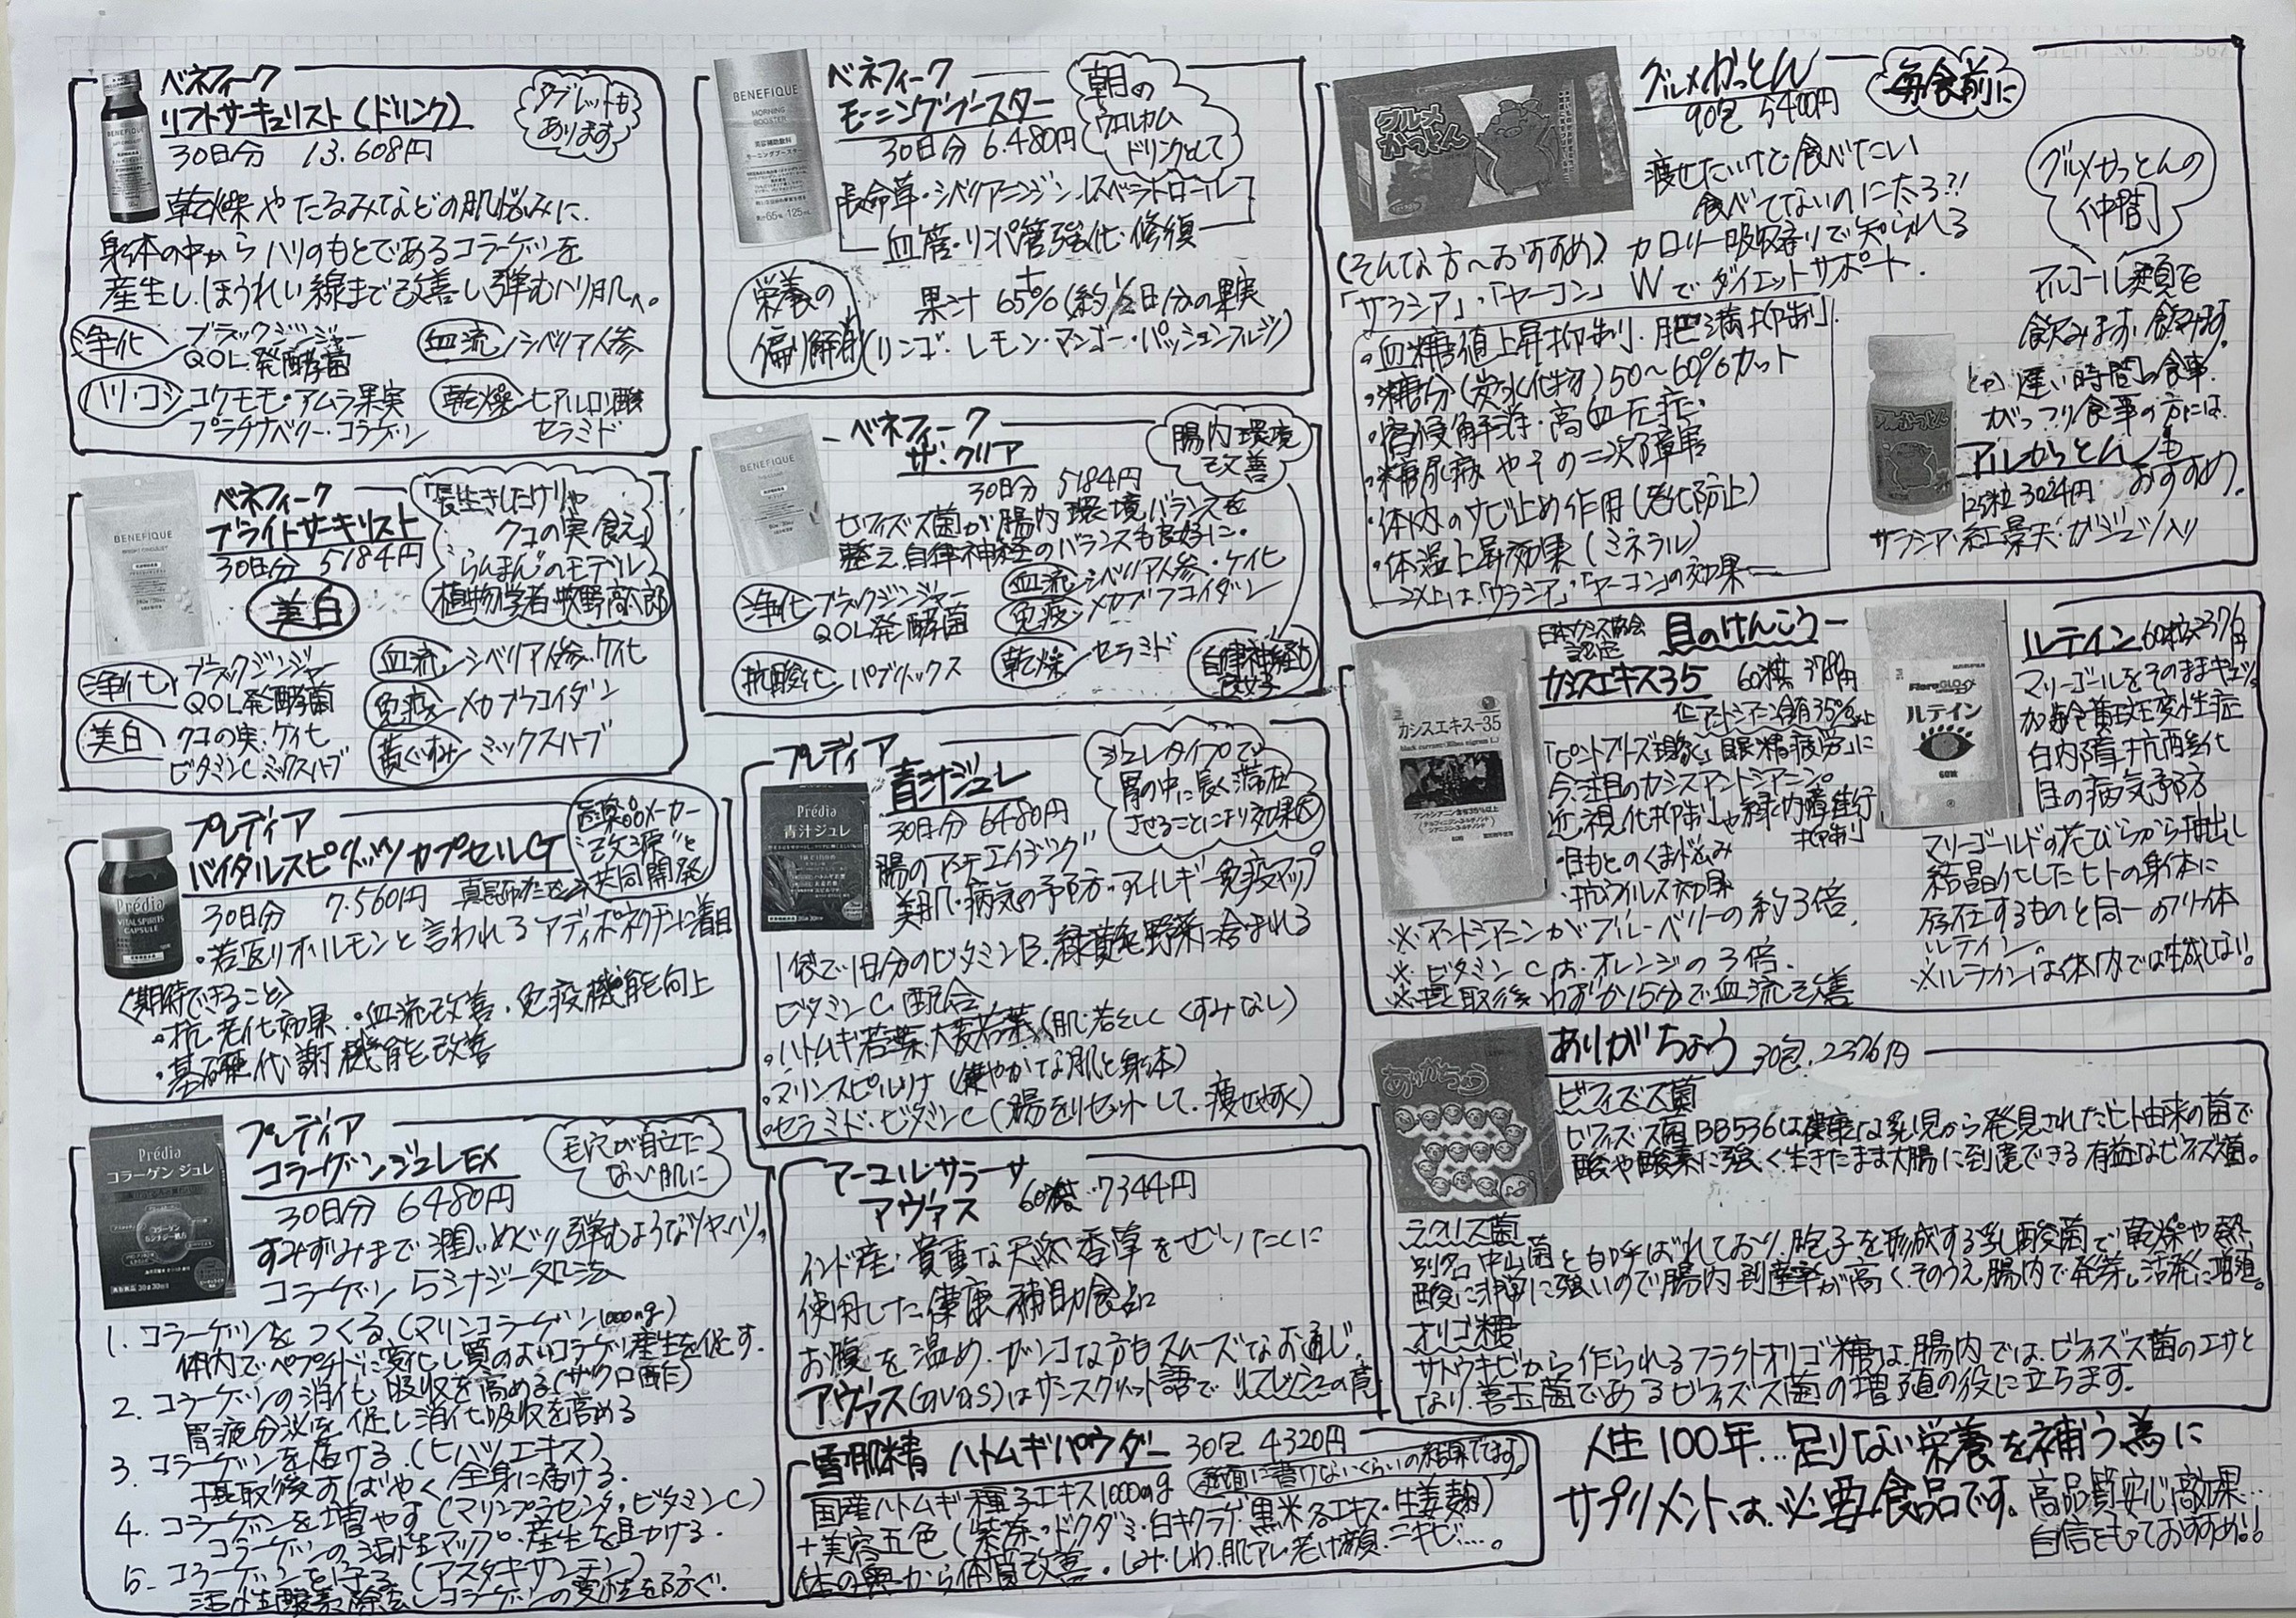 ベネフィーク
リフトサーキュリスト(ドリンク)
30日分 13.608円
タブレットも
あります
乾燥やたるみなどの肌悩みに.
身体の中からハリのもとであるコラーゲンを
産生し.ほうれい線まで改善し弾むハリ肌へ。
浄化 ブラックジンジャー
QOL発酵菌
血流 シベリア人参
ハリ・コシ コケモモ・アムラ果実
プラチナベリー・コラーゲン
乾燥 ヒアルロン酸
セラミド
ベネフィーク
ブライトサーキリスト
30日分 5184円
美白
「長生きしたけりゃ
クコの実食え」
"らんまん"のモデル
植物学者 牧野富太郎
浄化 ブラックジンジャー
QOL発酵菌
美白 クコの実・ケイ化
ビタミンC ミックスハーブ
血流 シベリア人参・ケイ化
免疫 メカブフコイダン
黄ぐすみ ミックスハーブ
プレディア
バイタルスピリッツ カプセルG
30日分 7.560円
医薬品メーカー
"改源"と
共同開発
・若返りホルモンと言われるアディポネクチンに着目
〈期待できること〉
・抗老化効果・血流改善・免疫機能向上
・基礎代謝機能改善
プレディア
コラーゲンジュレEX
30日分 6480円
毛穴が目立た
ない肌に
すみずみまで潤い.めぐり弾むようなツヤ.ハリ。
コラーゲン5シナジー処法
1. コラーゲンをつくる(マリンコラーゲン1000mg)
体内でペプチドに変化し質のよいコラーゲン産生を促す.
2. コラーゲンの消化吸収を高める(ザクロ酢)
胃液分泌を促し消化吸収を高める
3. コラーゲンを届ける.(ヒハツエキス)
摂取後すばやく全身に届ける.
4. コラーゲンを増やす(マリンプラセンタ・ビタミンC)
コラーゲンの活性マップ。産生を助ける.
5. コラーゲンを守る(アスタキサンチン)
活性酸素除去しコラーゲンの変性を防ぐ.
ベネフィーク
モーニングブースター
30日分 6.480円
朝の
ウエルカム
ドリンクとして
長命草・シベリアニンジン・レスベラトロール
血管・リンパ管強化・修復
+
栄養の
偏り解消
果汁 65%(約1/2日分の果実
(リンゴ.レモン・マンゴー・パッションフルーツ)
ベネフィーク
ザ・クリア
30日分 5184円
腸内環境
改善
ビフィズス菌が腸内環境バランスを
整え.自律神経のバランスも良好に.
浄化 ブラックジンジャー
QOL発酵菌
血流 シベリア人参・ケイ化
免疫 メカブフコイダン
抗酸化 パプリックス
乾燥 セラミド
自律神経も
良好
プレディア
青汁ジュレ
30日分 6480円
ジュレタイプで
胃の中に長く滞在
させることにより効果大
腸のアンチエイジング
美肌・病気の予防・アレルギー免疫マップ
1袋で1日分のビタミンB.緑黄色野菜に含まれる
ビタミンC 配合
・ハトムギ若葉・大麦若葉(肌若々しく くすみなし)
・マリンスピルリナ(健やかな肌と身体)
・セラミド・ビタミンC(腸をリセットして.痩せやすく)
アーユルサラーサ
アヴァス 60粒 7344円
インド産・貴重な天然香草をぜいたくに
使用した健康補助食品
お腹を温め.ガンコな方もスムーズなお通じ.
アヴァス(avas)はサンスクリット語で
雪肌精 ハトムギパウダー 30包 4320円
紙面に書けないくらいの結果でてます
国産ハトムギ種子エキス1000mg
+美容五色(紫茶・ドクダミ・白キクラゲ・黒米エキス・生姜麹)
体の奥から体質改善.しみ.しわ.肌アレ.老け顔.ニキビ....。
グルメかっとん
90包 5400円
毎食前に
痩せたいけど食べたい
食べてないのに太る?!
(そんな方へおすすめ)カロリー吸収香りで知られる
「サラシア」・「ヤーコン」 Wでダイエットサポート.
・血糖値上昇抑制.肥満抑制.
・糖分(炭水化物)50~60%カット
・宿便解消・高血圧症.
・糖尿病やその二次障害
・体内のサビ止め作用(老化防止)
・体温上昇効果(ミネラル)
⇒以上は.「サラシア」・「ヤーコン」の効果
グルメかっとんの
仲間
アルコール類を
飲みます.飲みます.
とか 遅い時間の食事.
がっつり食事の方には.
アルかっとんも
おすすめ.
125粒 3024円
サラシア・紅景天・ガジュツ入り
日本カシス協会
認定
目のけんこう
カシスエキス35 60粒 3780円
アントシアニン含有35%以上
「ピントフリーズ現象」「眼精疲労」に
今、注目のカシスアントシアニン。
近視化抑制や緑内障進行
抑制
・目もとのくまに
・抗ウイルス効果
※アントシアニンがブルーベリーの約3倍.
※ビタミンCは.オレンジの3倍.
※摂取後わずか15分で血流改善
ルテイン 60粒 2376円
マリーゴールドをそのままギュッ。
加齢黄斑変性症
白内障・抗酸化
目の病気予防
マリーゴールドの花びらから抽出し
結晶化したヒトの身体に
存在するものと同一のフリー体
ルテイン。
※ルテインは体内では生成しない!
ありがちょう 30包.2376円
ビフィズス菌
ビフィズス菌BB536は健康な乳児から発見されたヒト由来の菌で
酸や酸素に強く生きたまま大腸に到達できる有益なビフィズス菌。
ラクリス菌
別名 中山菌と呼ばれており.胞子を形成する乳酸菌で乾燥や熱
酸に非常に強いので腸内到達率が高く.そのうえ腸内で発芽し活発に増殖。
オリゴ糖
サトウキビから作られるフラクトオリゴ糖は.腸内では.ビフィズス菌のエサと
なり.善玉菌であるビフィズス菌の増殖の役に立ちます.
人生100年...足りない栄養を補う為に
サプリメントは.必要食品です。高品質安心高効果...
自信をもっておすすめ!!